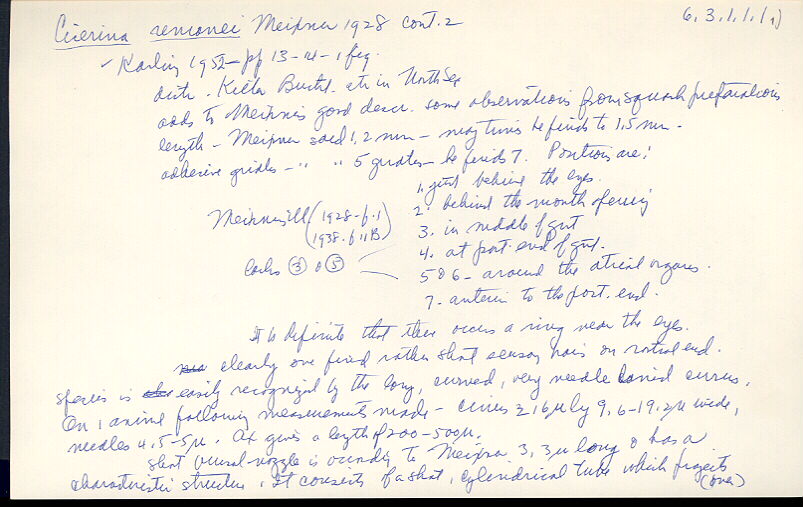 Cicerina remanei Meixner 1928 cont. 2
6.3.1.1.(1)
✓ Karling 1952 - pp 13-14 - 1 fig.
distr. Kieler Bucht. etc in North Sea
adds to Meixner's good descr. some observations from squash preparations
length - Meixner said 1,2 mm - may times he finds to 1.5 mm -
adhesive girdles - " " 5 girdles - he finds 7. Positions are:
1. just behind the eyes.
2. behind the mouth opening
3. in middle of gut
4. at post. end of gut.
5 & 6 - around the atrial organs.
7 - anterior to the post. end.
Meixner's ill (1928 - f. 1)
1938 - f. 11B)
lacks ③ & ⑤
It is definite that there occurs a ring near the eyes.
clearly one finds rather short sensory hairs on rostral end.
Species is easily recognized by the long, curved, very needle cirrus.
On 1 animal following measurements made - cirrus 216 µ by 9,6-19.2 µ wide,
needles 4.5-5 µ. Ax gives a length of 200-500 µ.
short bursal-nozzle is according to Meixner 3,3 µ long & has a
characteristic structure, it consists of a short, cylindrical tube which projects
(over)